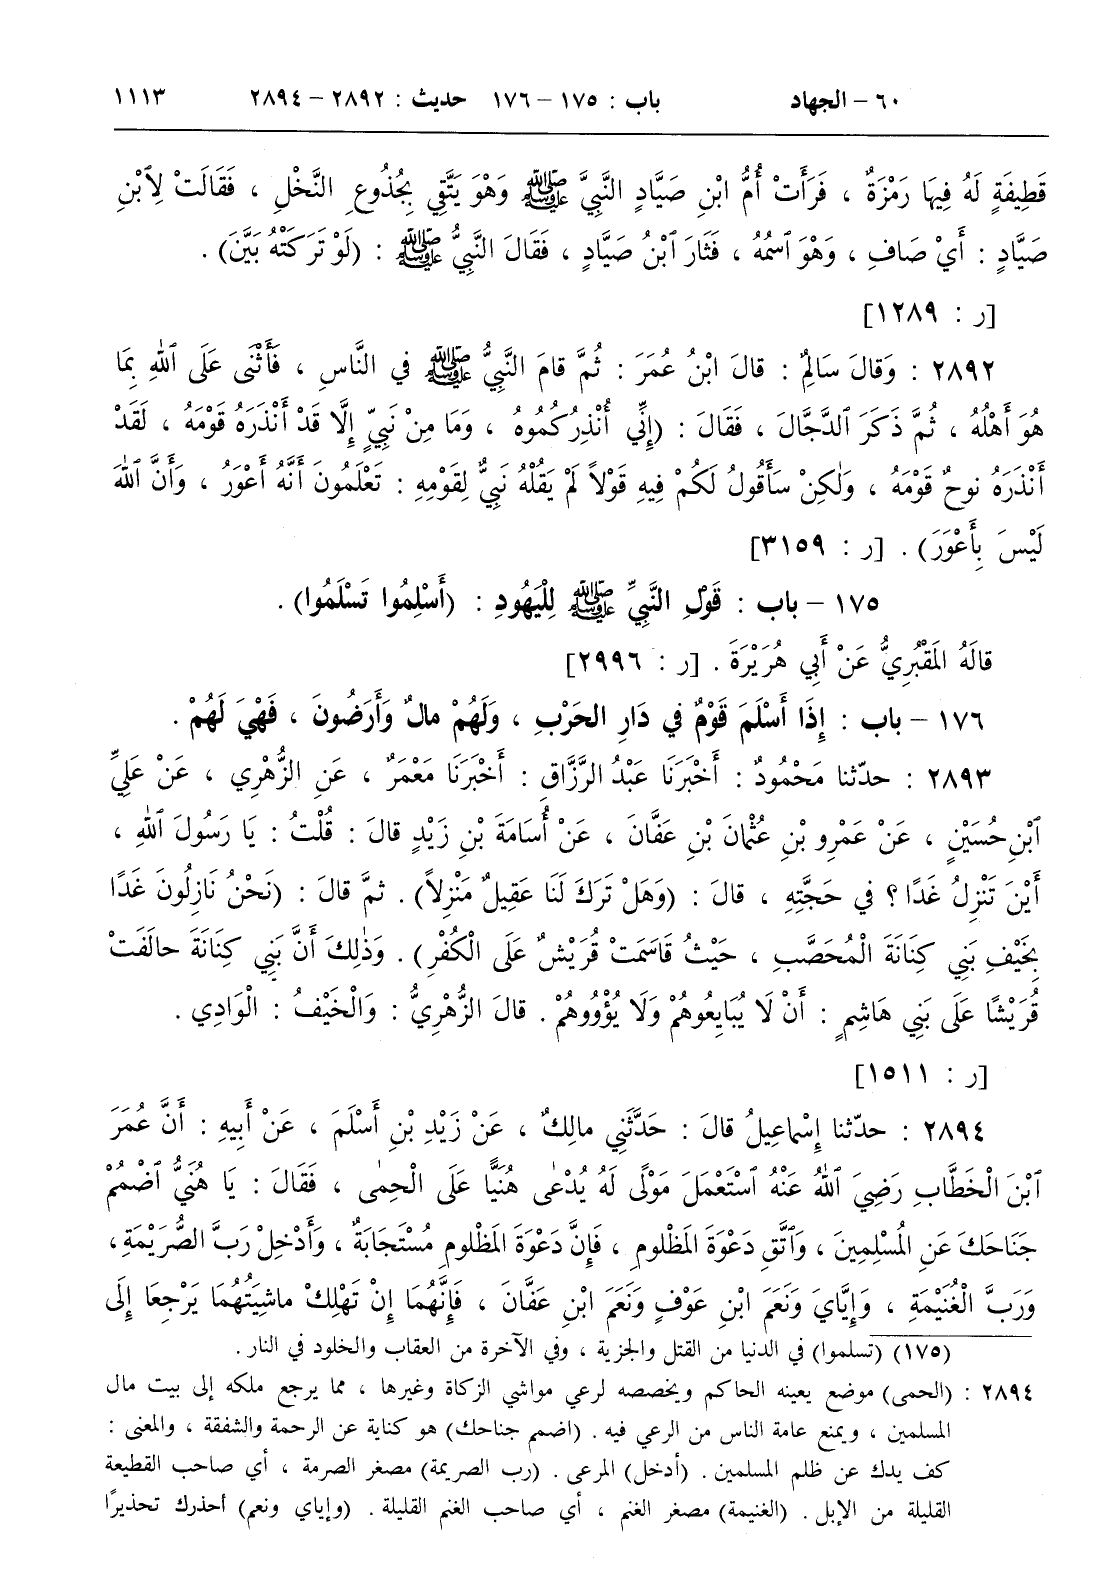 ٦٠ - الجهاد باب : ١٧٥ - ١٧٦ حديث : ٢٨٩٢ - ٢٨٩٤ ١١١٣
قَطِيفَةٍ لَهُ فِيهَا رَمْزَةٌ ، فَرَأَتْ أُمُّ ابْنِ صَيَّادٍ النَّبِيَّ ﷺ وَهْوَ يَتَّقِي بِجُذُوعِ النَّخْلِ ، فَقَالَتْ لِٱبْنِ
صَيَّادٍ : أَيْ صَافِ ، وَهْوَ ٱسْمُهُ ، فَثَارَ ٱبْنُ صَيَّادٍ ، فَقَالَ النَّبِيُّ ﷺ : (لَوْ تَرَكَتْهُ بَيَّنَ) .
[ر : ١٢٨٩]
٢٨٩٢ : وَقالَ سَالِمٌ : قالَ ابْنُ عُمَرَ : ثُمَّ قامَ النَّبِيُّ ﷺ في النَّاسِ ، فَأَثْنَى عَلَى ٱللهِ بِمَا
هُوَ أَهْلُهُ ، ثُمَّ ذَكَرَ ٱلدَّجَّالَ ، فَقَالَ : (إِنِّي أُنْذِرُكُمُوهُ ، وَمَا مِنْ نَبِيٍّ إِلَّا قَدْ أَنْذَرَهُ قَوْمَهُ ، لَقَدْ
أَنْذَرَهُ نوحٌ قَوْمَهُ ، وَلٰكِنْ سَأَقُولُ لَكُمْ فِيهِ قَوْلاً لَمْ يَقُلْهُ نَبِيٌّ لِقَوْمِهِ : تَعْلَمُونَ أَنَّهُ أَعْوَرُ ، وَأَنَّ ٱللهَ
لَيْسَ بِأَعْوَرَ) . [ر : ٣١٥٩]
١٧٥ - باب : قَوْلِ النَّبِيِّ ﷺ لِلْيَهُودِ : (أَسْلِمُوا تَسْلَمُوا) .
قالَهُ المَقْبُرِيُّ عَنْ أَبِي هُرَيْرَةَ . [ر : ٢٩٩٦]
١٧٦ - باب : إِذَا أَسْلَمَ قَوْمٌ في دَارِ الحَرْبِ ، وَلَهُمْ مالٌ وَأَرَضُونَ ، فَهْيَ لَهُمْ .
٢٨٩٣ : حدّثنا مَحْمُودٌ : أَخْبَرَنَا عَبْدُ الرَّزَّاقِ : أَخْبَرَنَا مَعْمَرٌ ، عَنِ الزُّهْرِي ، عَنْ عَلِيِّ
ٱبْنِ حُسَيْنٍ ، عَنْ عَمْرِو بْنِ عُثْمانَ بْنِ عَفَّانَ ، عَنْ أُسَامَةَ بْنِ زَيْدٍ قالَ : قُلْتُ : يَا رَسُولَ ٱللهِ ،
أَيْنَ تَنْزِلُ غَدًا ؟ في حَجَّتِهِ ، قالَ : (وَهَلْ تَرَكَ لَنَا عَقِيلٌ مَنْزِلاً) . ثمَّ قالَ : (نَحْنُ نَازِلُونَ غَدًا
بِخَيْفِ بَنِي كِنَانَةَ الْمُحَصَّبِ ، حَيْثُ قاسَمَتْ قُرَيْشٌ عَلَى الْكُفْرِ) . وَذٰلِكَ أَنَّ بَنِي كِنَانَةَ حالَفَتْ
قُرَيْشًا عَلَى بَنِي هَاشِمٍ : أَنْ لَا يُبَايِعُوهُمْ وَلَا يُؤْوُوهُمْ . قالَ الزُّهْرِيُّ : وَالْخَيْفُ : الْوَادِي .
[ر : ١٥١١]
٢٨٩٤ : حدّثنا إِسْماعِيلُ قالَ : حَدَّثَنِي مالِكٌ ، عَنْ زَيْدِ بْنِ أَسْلَمَ ، عَنْ أَبِيهِ : أَنَّ عُمَرَ
ٱبْنَ الْخَطَّابِ رَضِيَ ٱللهُ عَنْهُ ٱسْتَعْمَلَ مَوْلًى لَهُ يُدْعٰى هُنَيًّا عَلَى الْحِمٰى ، فَقَالَ : يَا هُنَيُّ ٱضْمُمْ
جَنَاحَكَ عَنِ المُسْلِمِينَ ، وَٱتَّقِ دَعْوَةَ المَظْلومِ ، فَإِنَّ دَعْوَةَ المَظْلومِ مُسْتَجَابَةٌ ، وَأَدْخِلْ رَبَّ الصُّرَيْمَةِ ،
وَرَبَّ الْغُنَيْمَةِ ، وَإِيَّايَ وَنَعَمَ ابْنِ عَوْفٍ وَنَعَمَ ابْنِ عَفَّانَ ، فَإِنَّهُمَا إِنْ تَهْلِكْ ماشِيَتُهُمَا يَرْجِعَا إِلَى
(١٧٥) (تسلموا) في الدنيا من القتل والجزية ، وفي الآخرة من العقاب والخلود في النار .
٢٨٩٤ : (الحمى) موضع يعينه الحاكم ويخصصه لرعي مواشي الزكاة وغيرها ، مما يرجع ملكه إلى بيت مال
المسلمين ، ويمنع عامة الناس من الرعي فيه . (اضمم جناحك) هو كناية عن الرحمة والشفقة ، والمعنى :
كف يدك عن ظلم المسلمين . (أدخل) المرعى . (رب الصريمة) مصغر الصرمة ، أي صاحب القطيعة
القليلة من الإبل . (الغنيمة) مصغر الغنم ، أي صاحب الغنم القليلة . (وإياي ونعم) أحذرك تحذيرًا